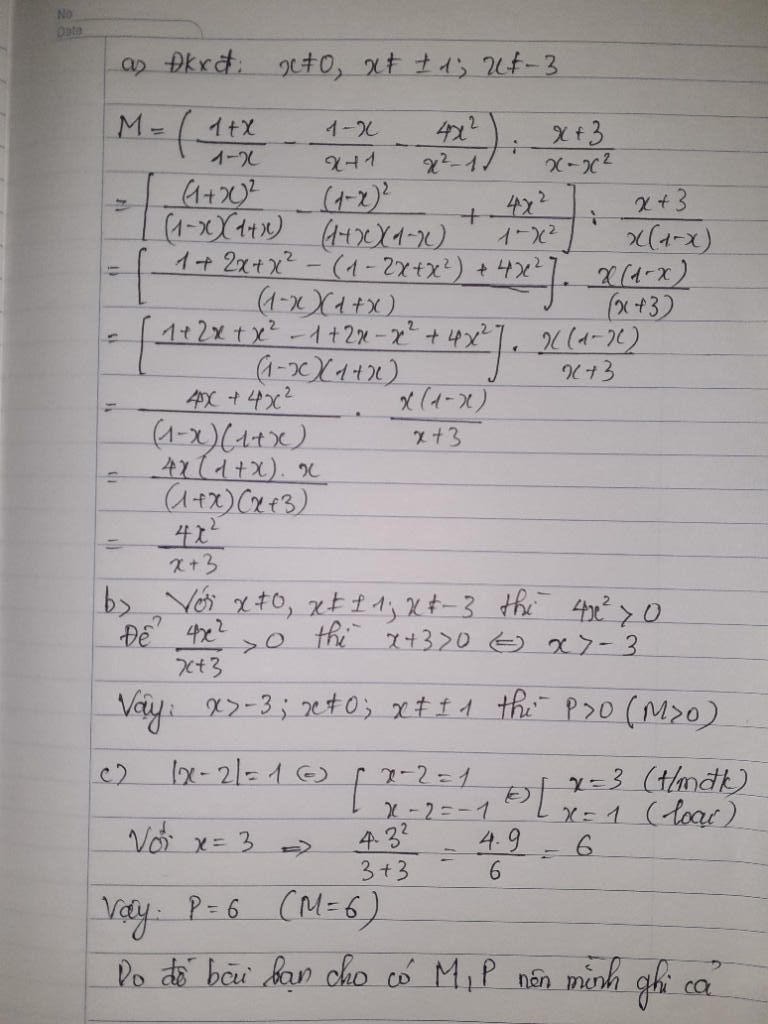 No
Date
a) ĐKXĐ: x≠0, x≠ ±1; x≠-3
M = ( (1+x)/(1-x) - (1-x)/(x+1) - 4x²/(x²-1) ) : (x+3)/(x-x²)
= [ (1+x)²/((1-x)(1+x)) - (1-x)²/((1+x)(1-x)) + 4x²/(1-x²) ] : (x+3)/(x(1-x))
= [ (1+2x+x² - (1-2x+x²) + 4x²)/((1-x)(1+x)) ] . x(1-x)/(x+3)
= [ (1+2x+x² -1+2x-x² + 4x²)/((1-x)(1+x)) ] . x(1-x)/(x+3)
= (4x+4x²)/((1-x)(1+x)) . x(1-x)/(x+3)
= (4x(1+x).x)/((1+x)(x+3))
= 4x²/(x+3)
b) Với x≠0, x≠±1; x≠-3 thì 4x²>0
Để 4x²/(x+3) >0 thì x+3>0 ⇔ x>-3
Vậy: x>-3; x≠0; x≠±1 thì P>0 (M>0)
c) |x-2|=1 ⇔ [ x-2=1 ⇔ [ x=3 (t/mđk)
x-2=-1 x=1 (loại)
Với x=3 ⇒ 4.3²/(3+3) = 4.9/6 = 6
Vậy: P=6 (M=6)
Do đề bài bạn cho có M, P nên mình ghi cả